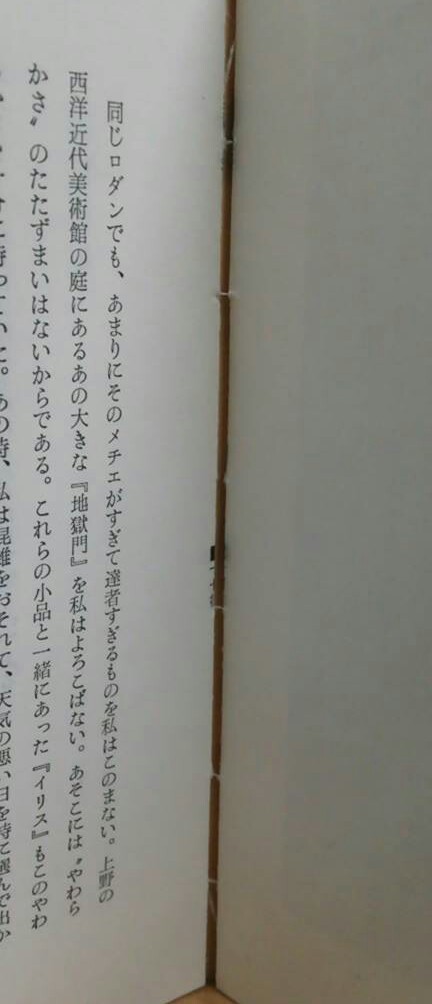 同じロダンでも、あまりにそのメチェがすぎて達者すぎるものを私はこのまない。上野の
西洋近代美術館の庭にあるあの大きな『地獄門』を私はよろこばない。あそこには〝やわら
かさ〟のたたずまいはないからである。これらの小品と一緒にあった『イリス』もこのやわ
持っていた。あの時、私は混雑をおそれて、天気の悪い日を特に選んで出か